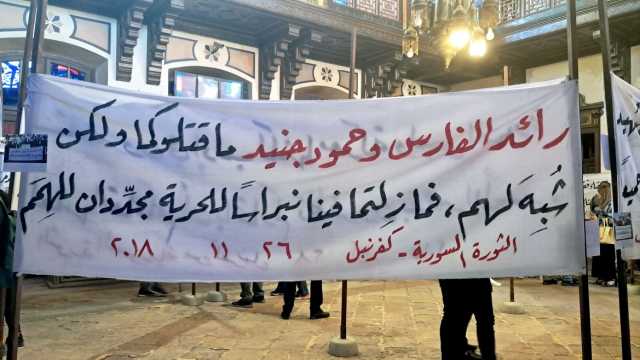 رائد الفارس وحمود جنيد ما قتلوكما ولكن
شُبِّهَ لهم، فما زلتما فينا نبراساً للحرية مجدِّدان للهِمَم
الثورة السورية - كفرنبل ٢٦ ١١ ٢٠١٨